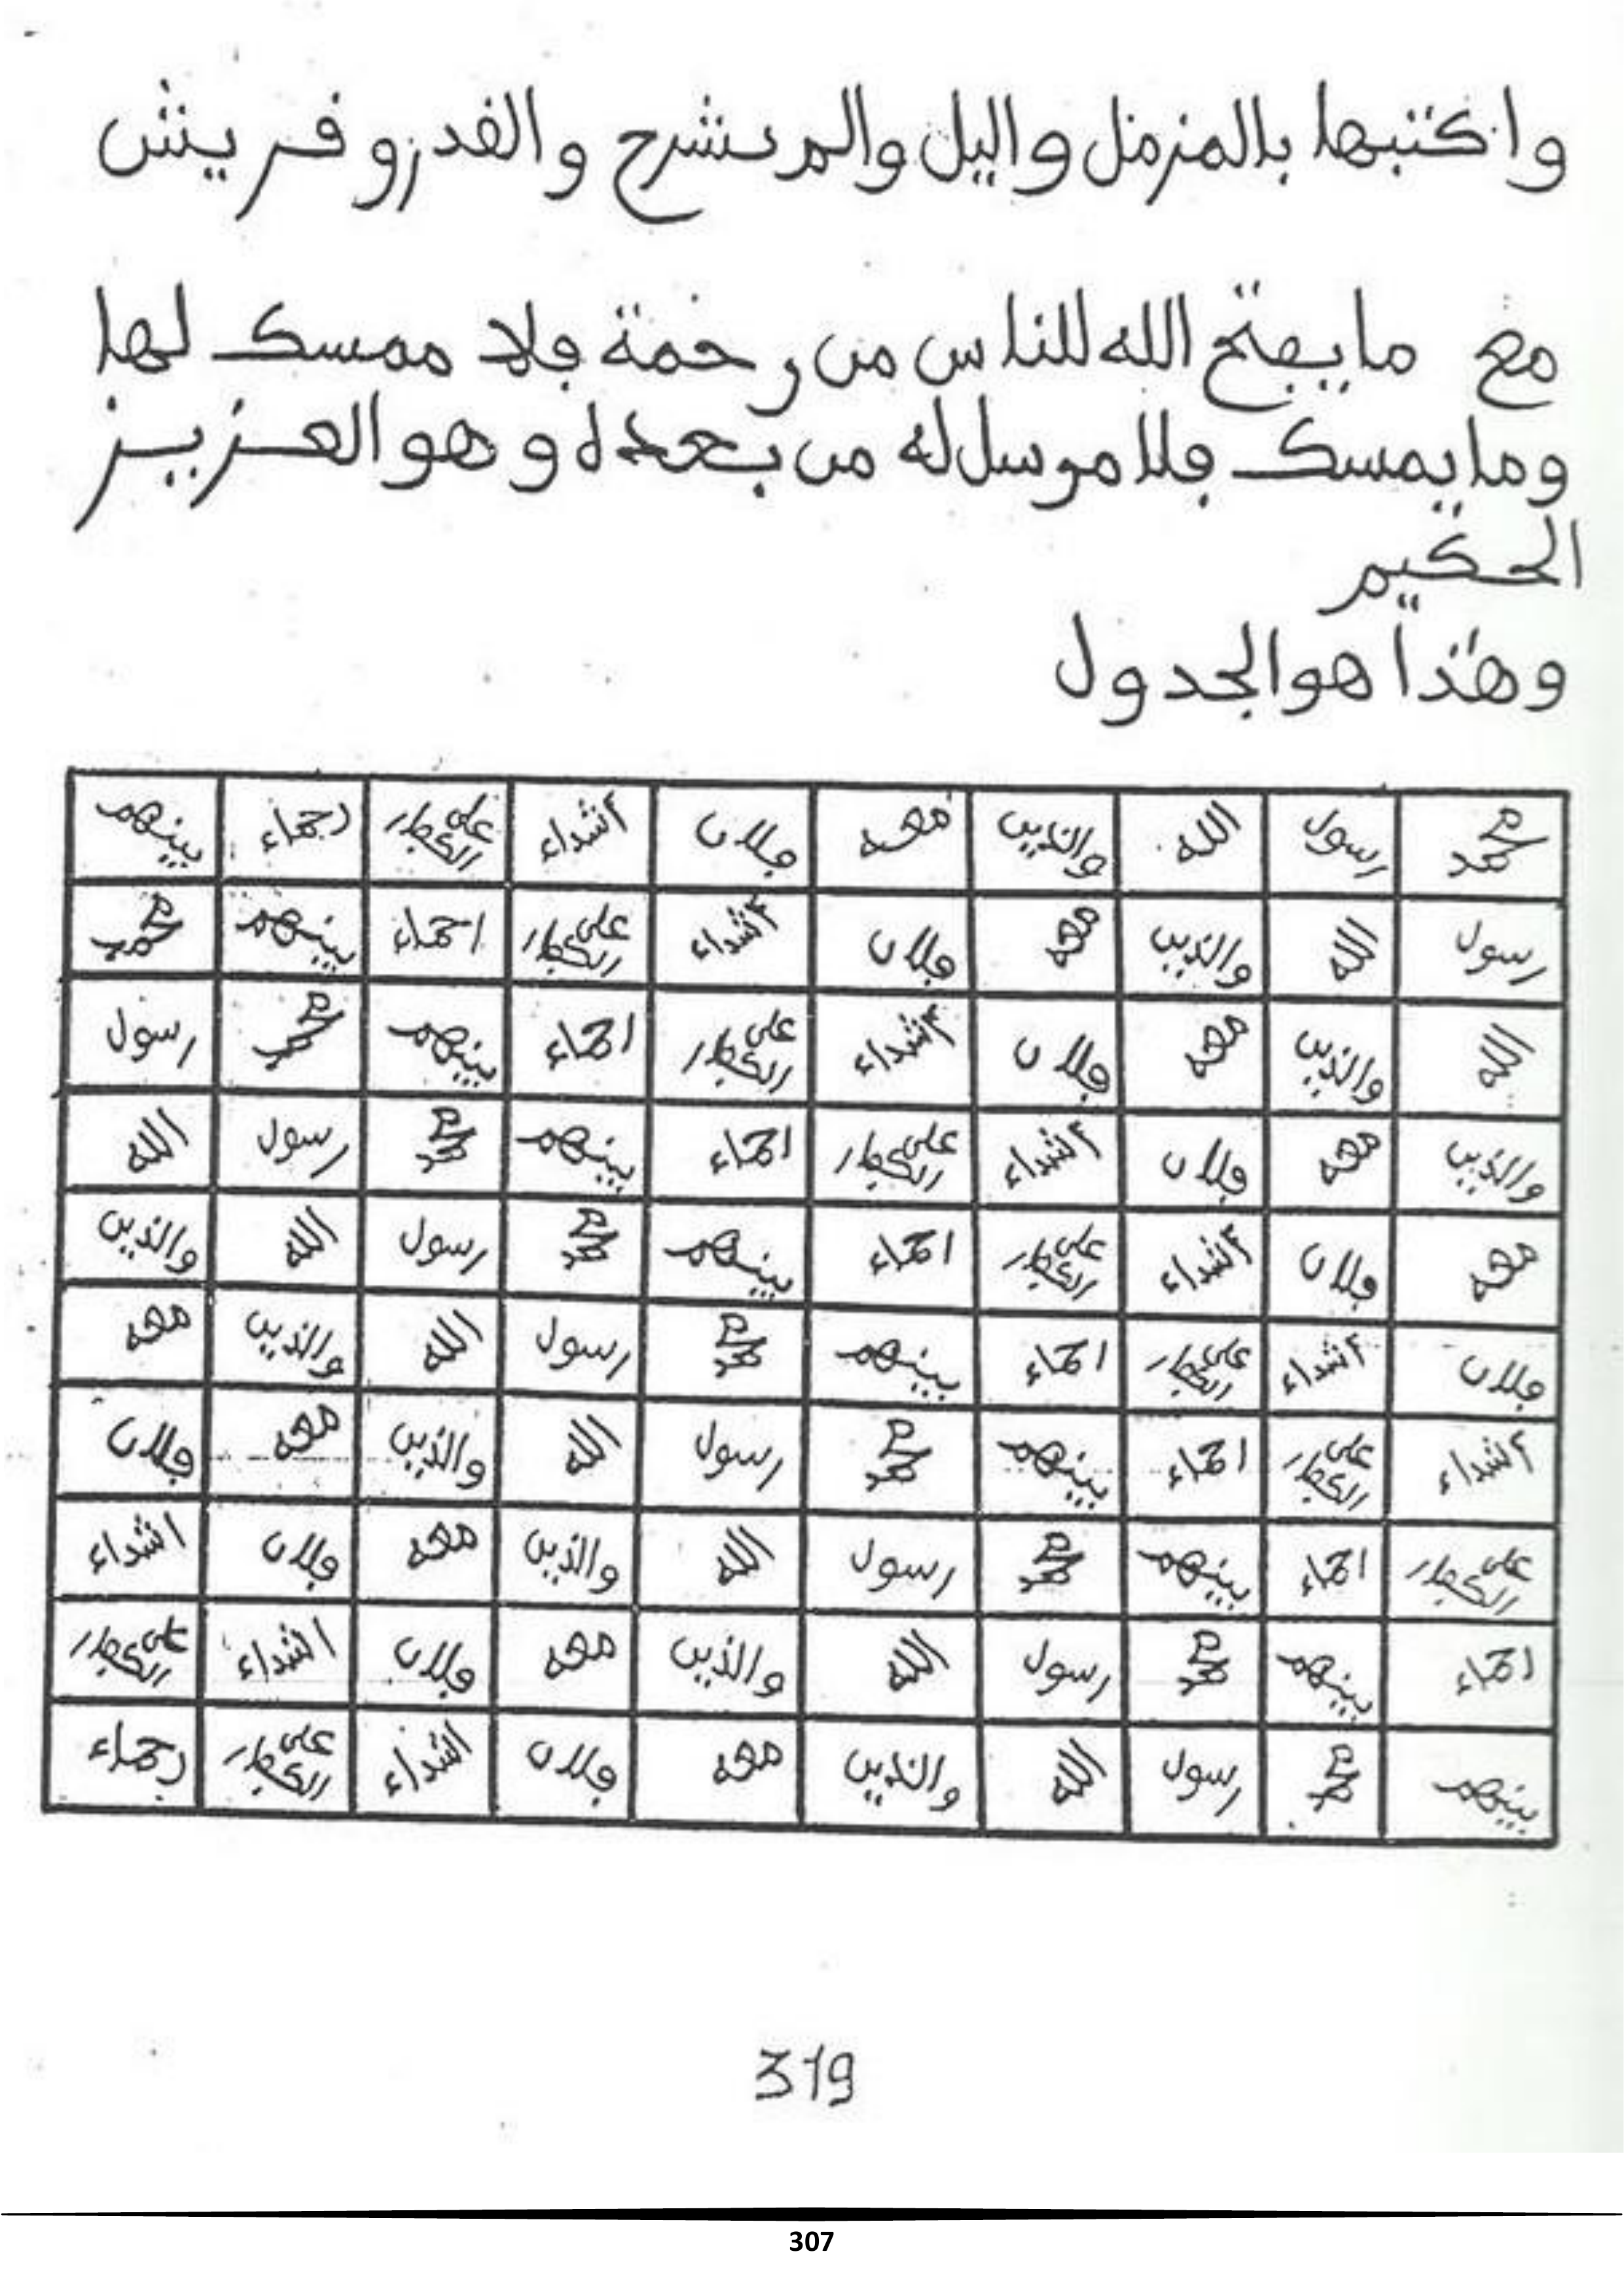 واكتبها بالمزمل واليل والم نشرح والقدر وقريش
مع ما يفتح الله للناس من رحمة فلا ممسك لها
وما يمسك فلا مرسل له من بعده وهو العزيز
الحكيم
وهذا هو الجدول
محمد رسول الله والذين معه فلان أشداء على الكفار رحماء بينهم
رسول الله والذين معه فلان أشداء على الكفار احماء بينهم محمد
الله والذين معه فلان أشداء على الكفار احماء بينهم محمد رسول
والذين معه فلان أشداء على الكفار احماء بينهم محمد رسول الله
معه فلان أشداء على الكفار احماء بينهم محمد رسول الله والذين
فلان أشداء على الكفار احماء بينهم محمد رسول الله والذين معه
أشداء على الكفار احماء بينهم محمد رسول الله والذين معه فلان
على الكفار احماء بينهم محمد رسول الله والذين معه فلان اشداء
احماء بينهم محمد رسول الله والذين معه فلان اشداء على الكفار
بينهم محمد رسول الله والذين معه فلان اشداء على الكفار رحماء
319
307